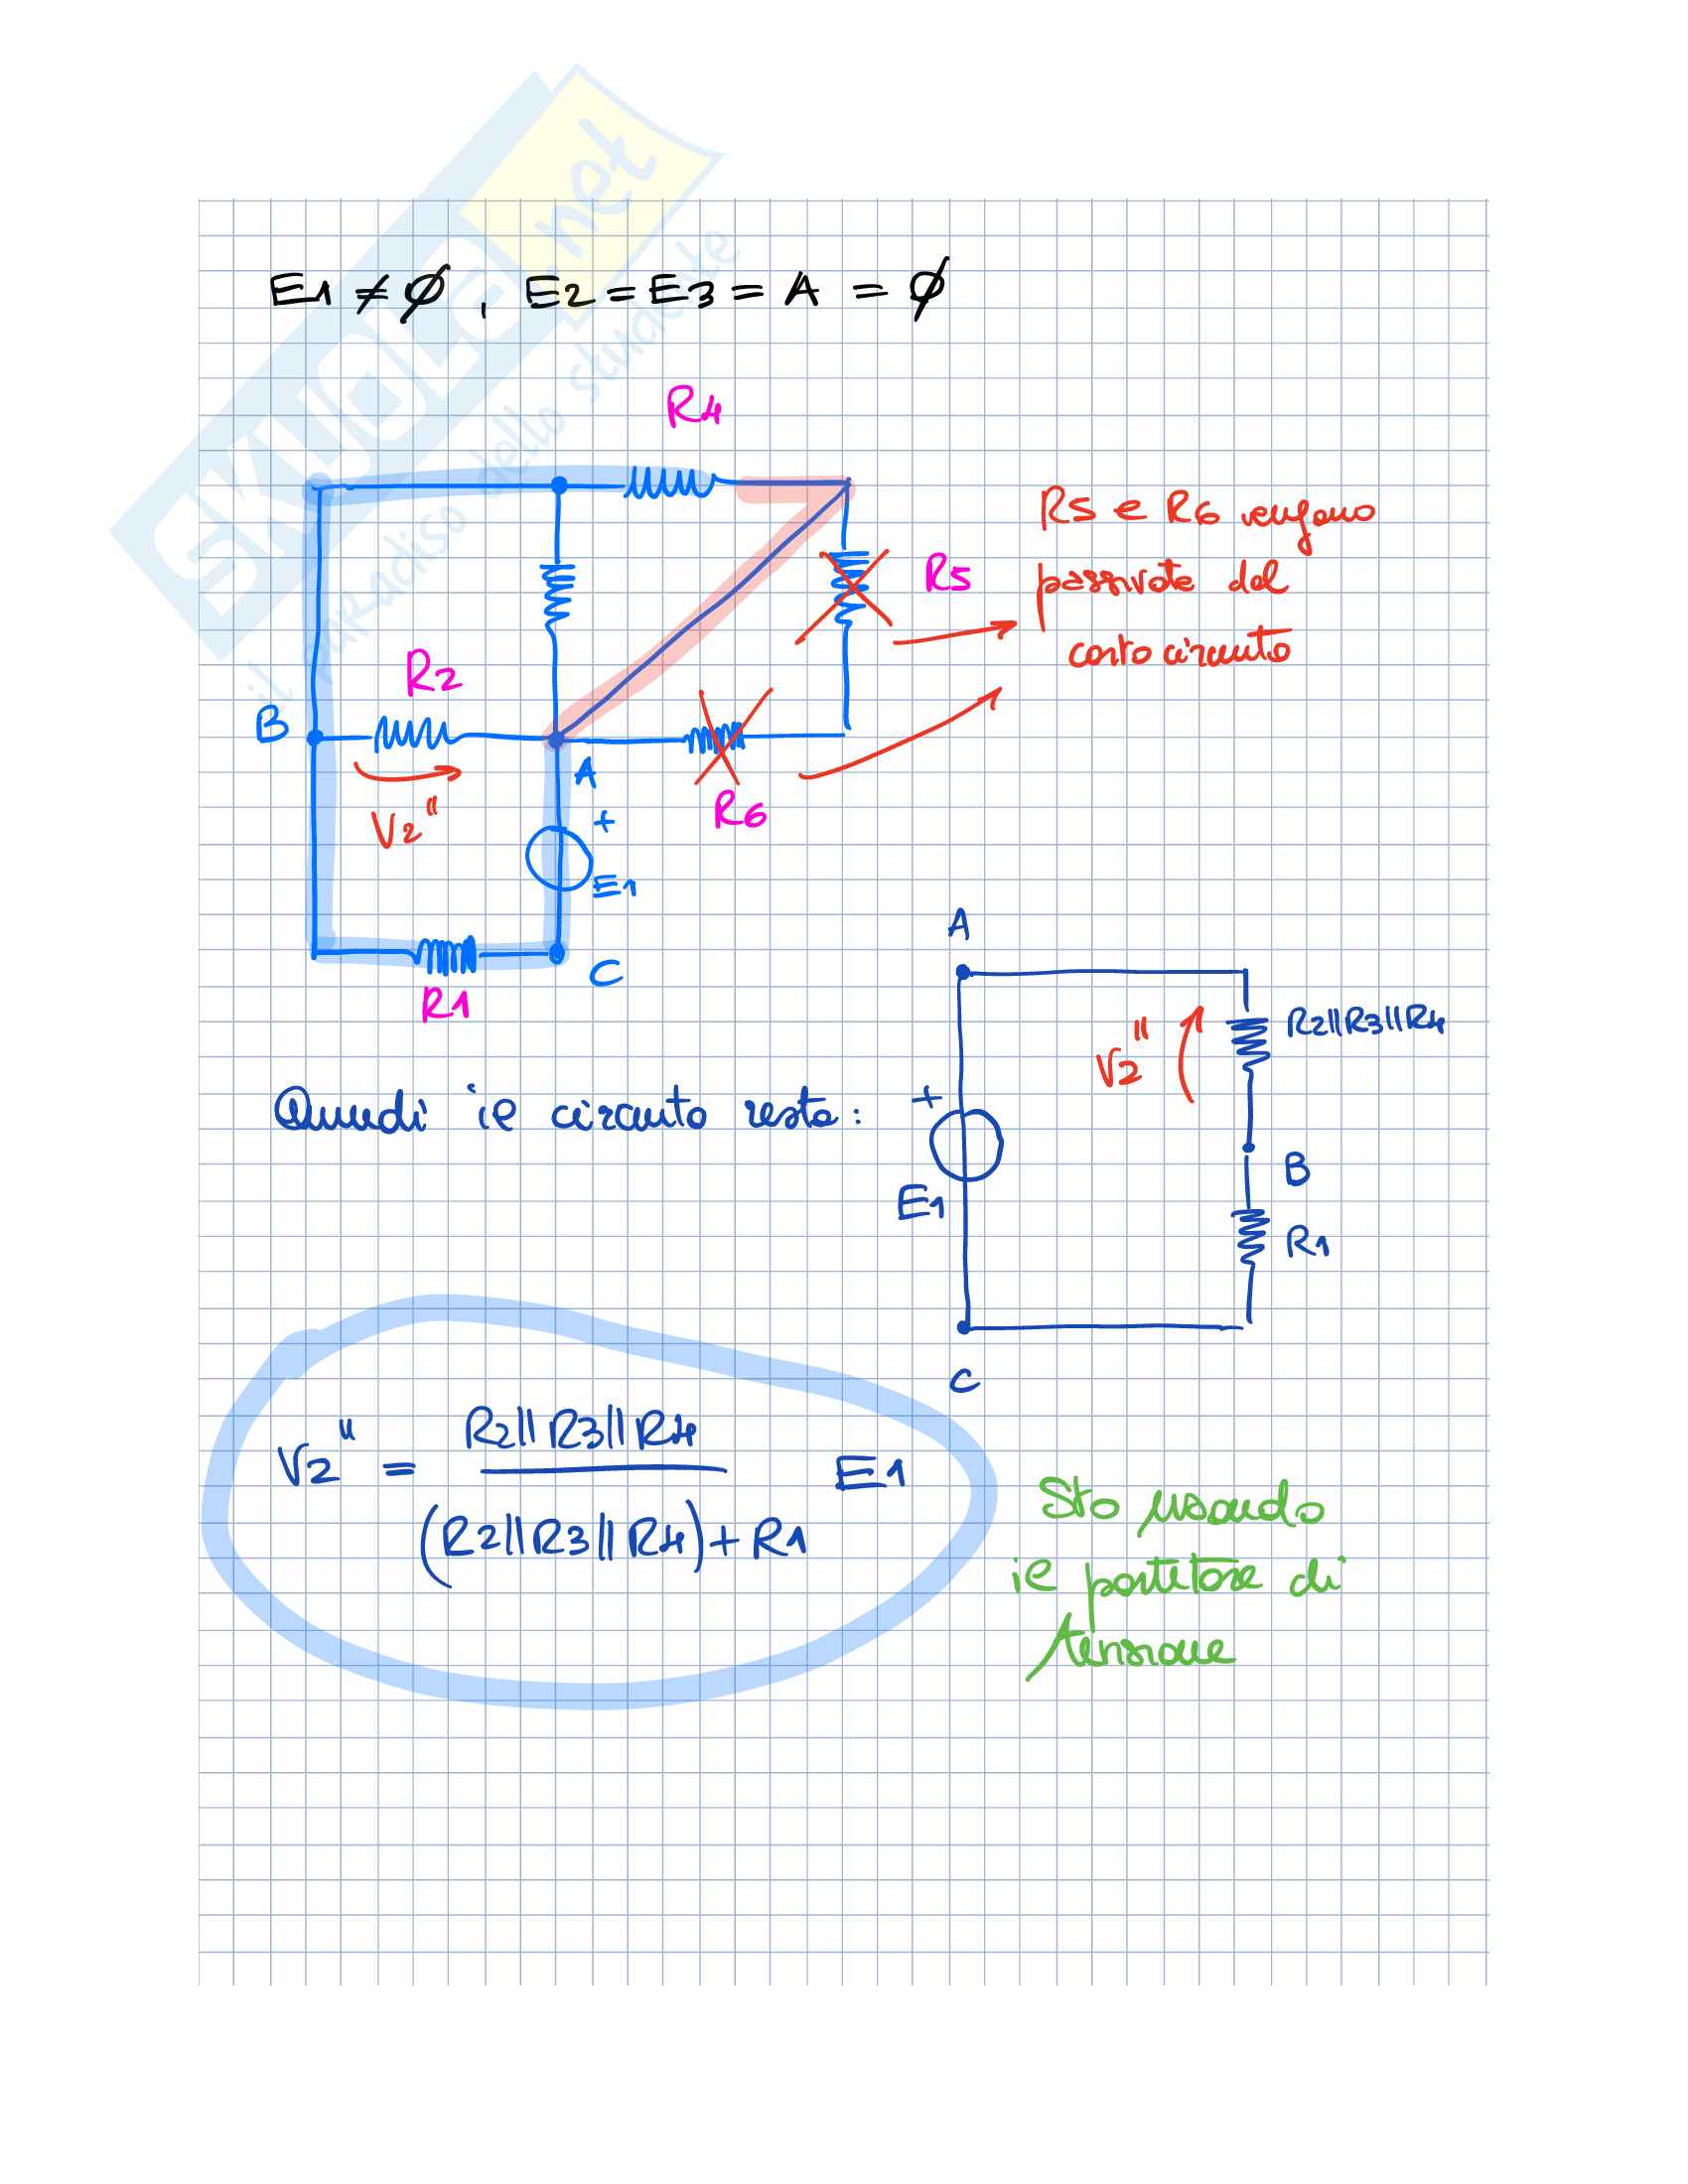 SKUOLA.net
il paradiso dello studente
E1 ≠ ∅, E2 = E3 = A = ∅
R4
R5 e R6 vengono
passivate dal
corto circuito
R5
R2
B
A
V2"
R6
+
E1
C
R1
A
R2||R3||R4
V2"
Quindi il circuito resta:
+
B
E1
R1
C
V2" = R2||R3||R4 / (R2||R3||R4)+R1 E1
Sto usando
il partitore di
tensione